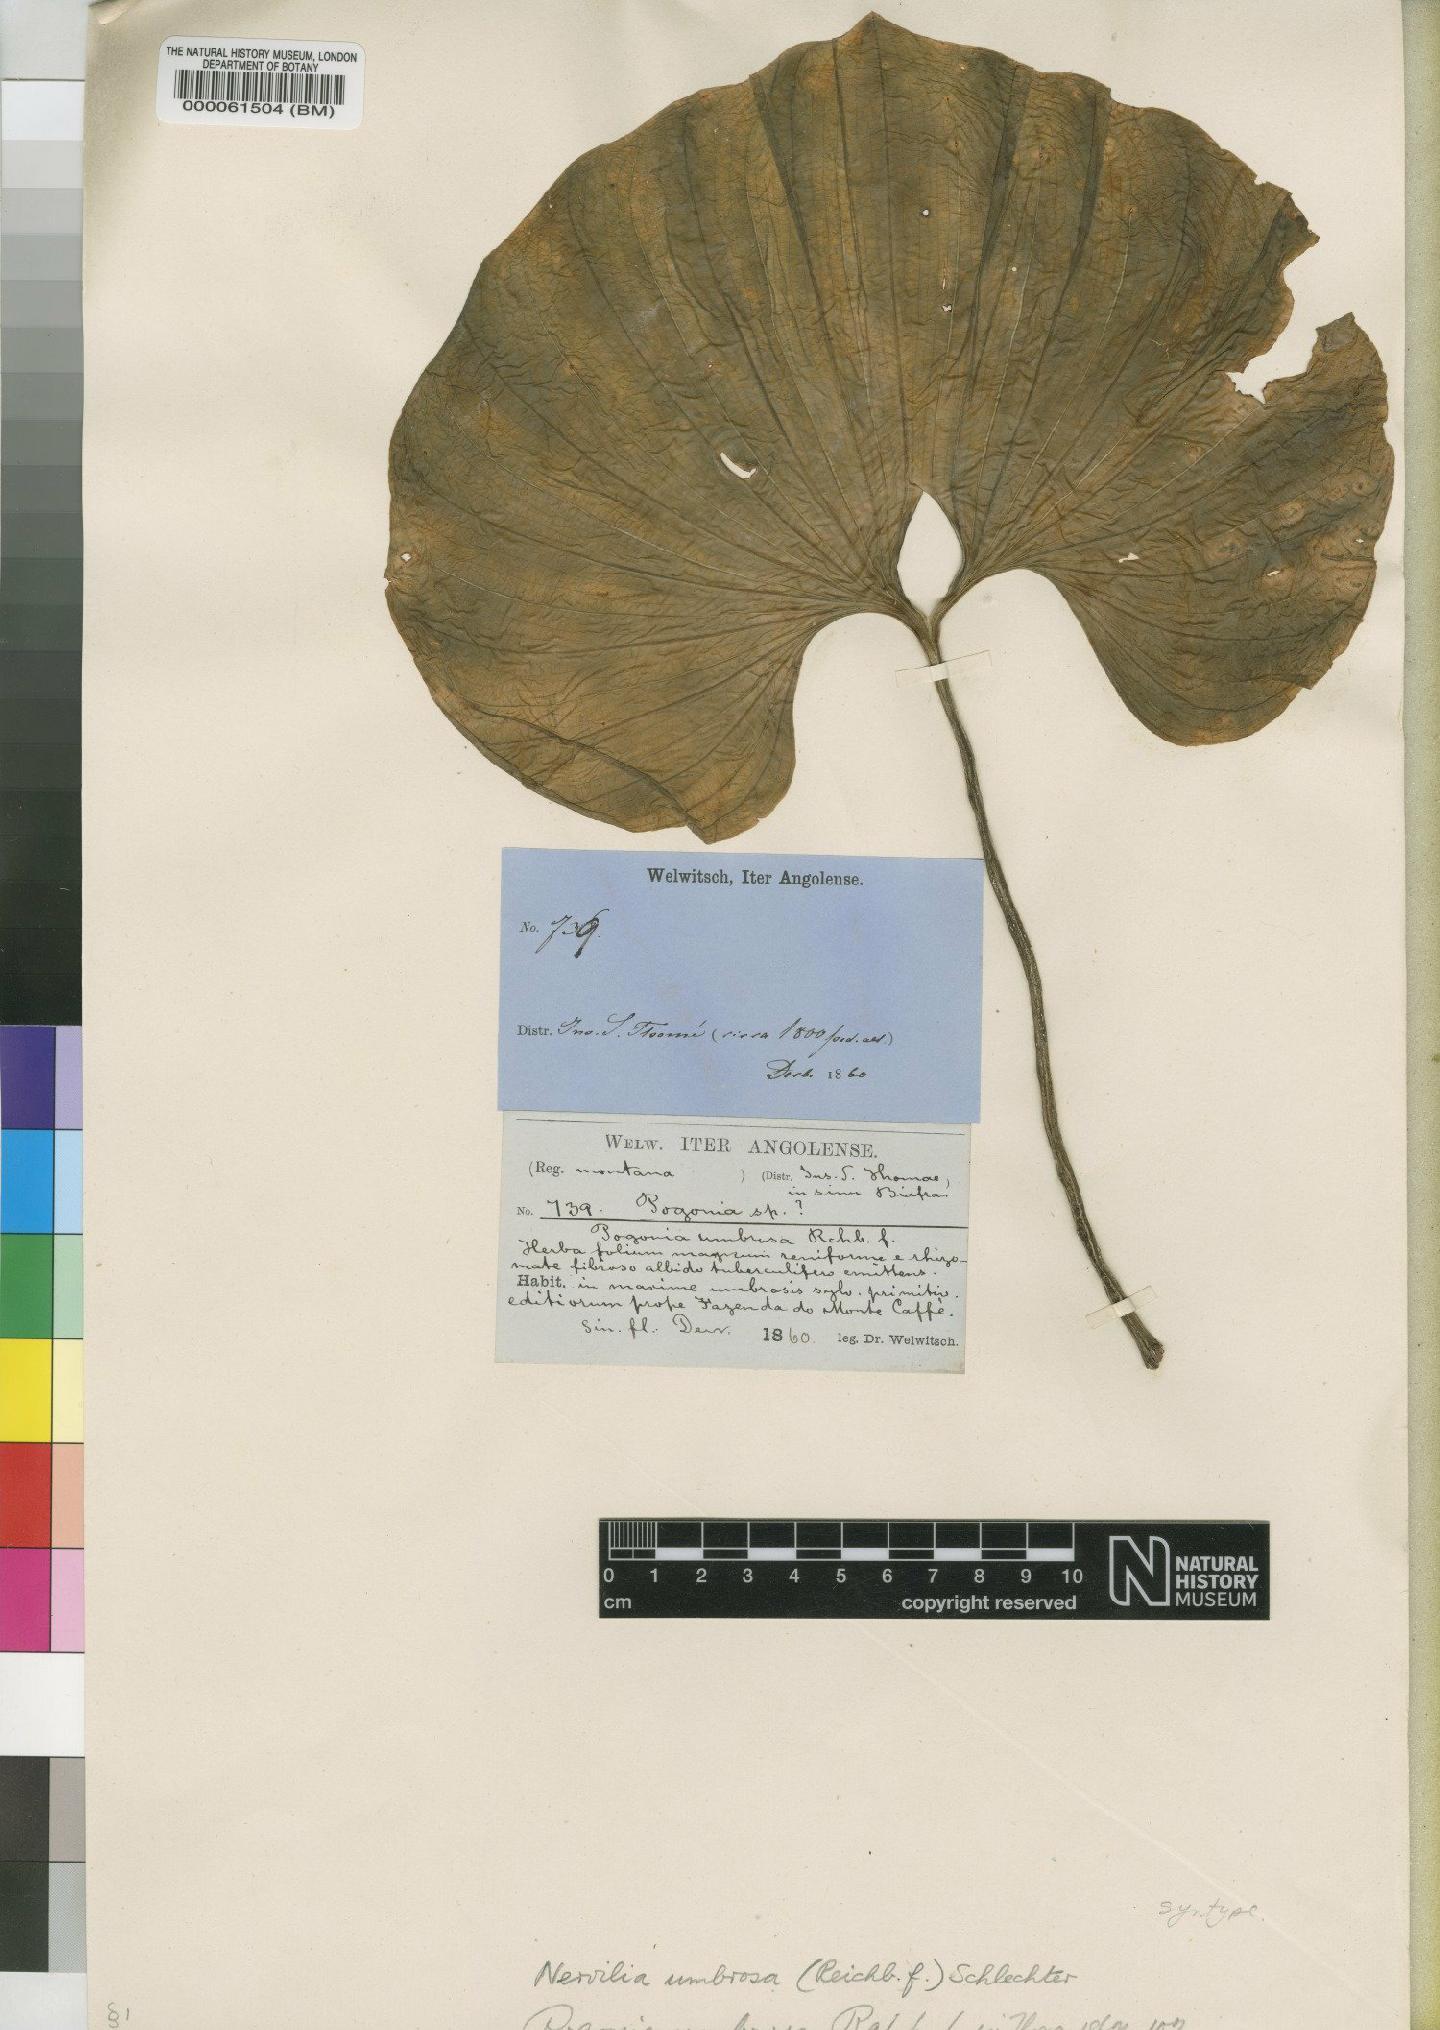 THE NATURAL HISTORY MUSEUM, LONDON
DEPARTMENT OF BOTANY
000061504 (BM)
Welwitsch, Iter Angolense.
No. 739.
Distr. Ins. S. Thomé (circa 1800 ped. alt.)
Decb. 1860
WELW. ITER ANGOLENSE.
(Reg. montana ) (Distr. Ins. S. Thomae,
in sinu Biafra
No. 739. Pogonia sp.?
Pogonia umbrosa Rchb. f.
Herba folium magnum reniforme e rhizo-
mate fibroso albido tuberculifero emittens.
Habit. in maxime umbrosis sylv. primitiv.
editiorum prope Fazenda do Monte Caffé.
Sin. fl. Decr. 1860. leg. Dr. Welwitsch.
0 1 2 3 4 5 6 7 8 9 10
cm copyright reserved
NATURAL
HISTORY
MUSEUM
syntype.
Nervilia umbrosa (Reichb. f.) Schlechter